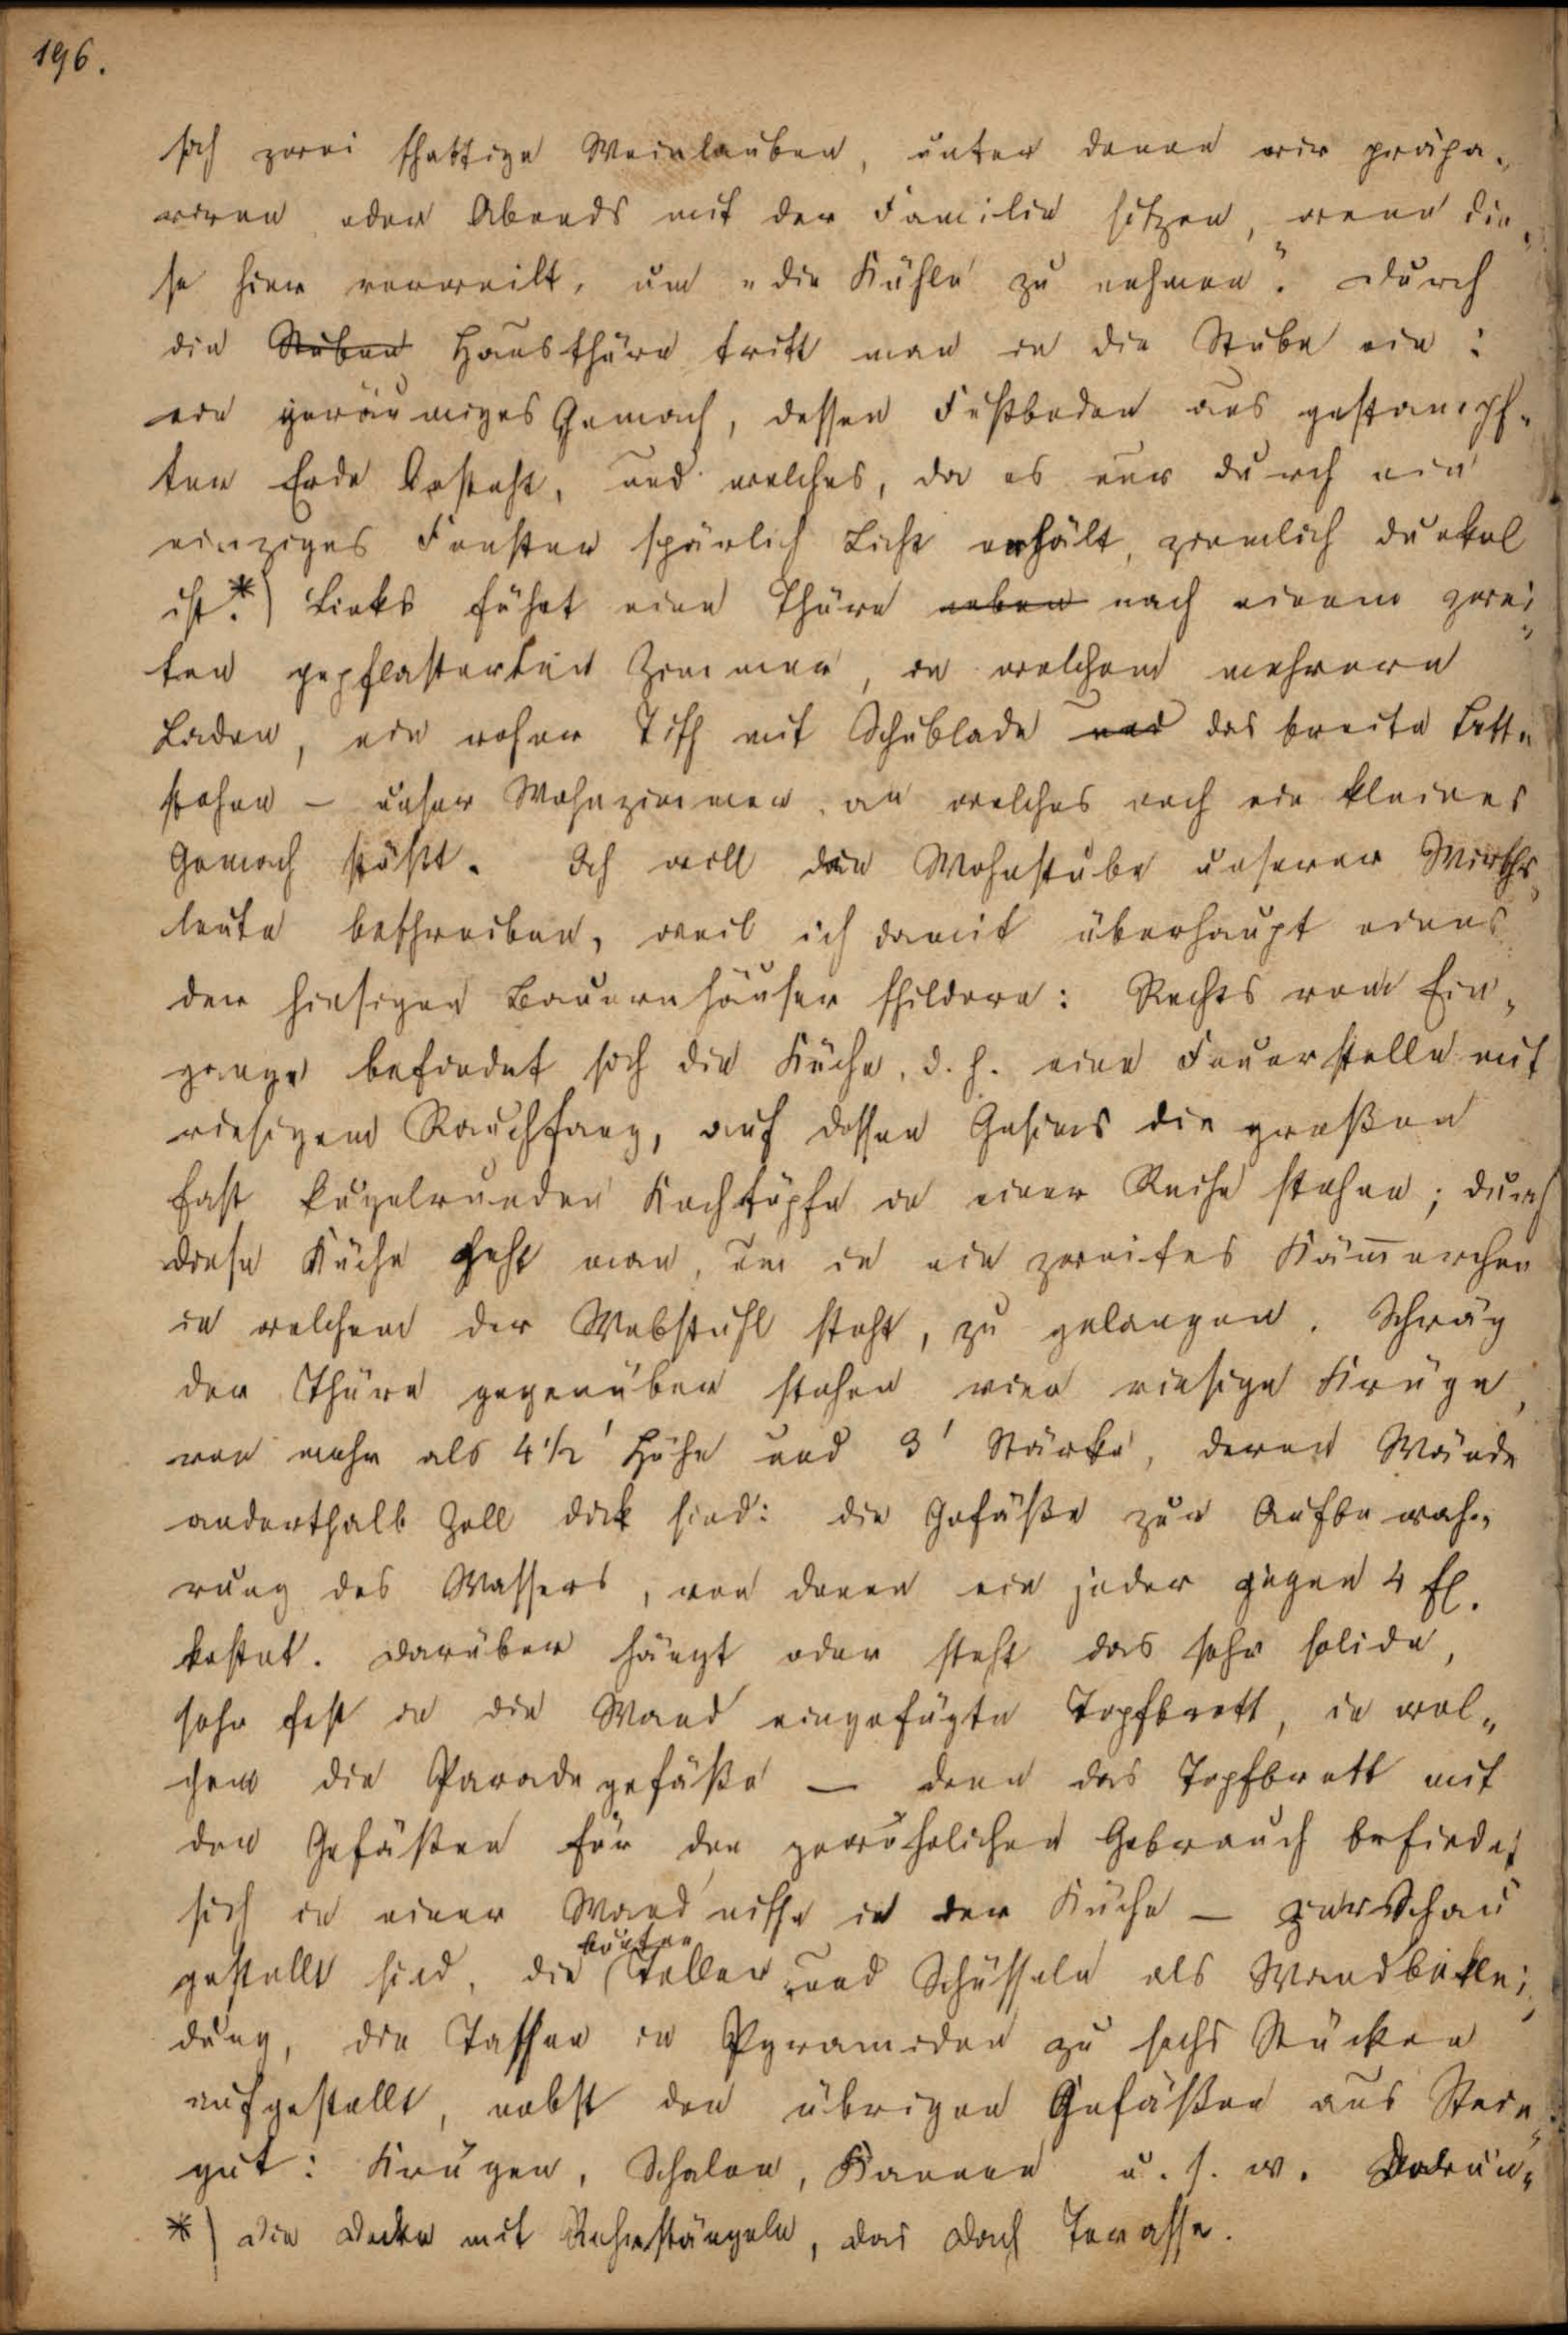 196.
sich zwei schattige Weinlauben, unter denen wir präpa-
riren oder Abends mit der Familie sitzen, wenn die-
se hier verweilt, um „die Kühle zu nehmen“. Durch
die Stuben Hausthüre tritt man in die Stube ein:
ein geräumiges Gemach, dessen Fußboden aus gestampf-
ter Erde besteht, und welches, da es nur durch ein
einziges Fenster spärlich Licht erhält, ziemlich dunkel
ist.*) Links führt eine Thüre neben nach einem zwei-
ten gepflasterten Zimmer, in welchem mehrere
Laden, ein roher Tisch mit Schublade und das breite Bett
stehen – unser Wohnzimmer, an welches noch ein kleines
Gemach stößt. Ich will die Wohnstube unserer Wirths-
leute beschreiben, weil ich damit überhaupt eines
der hiesigen Bauernhäuser schildere: Rechts vom Ein-
gange befindet sich die Küche, d. h. eine Feuerstelle mit
riesigem Rauchfang, auf dessen Gesims die großen
fast kugelrunden Kochtöpfe in einer Reihe stehen; durch
diese Küche geht man, um in ein zweites Kämmerchen
in welchem der Webstuhl steht, zu gelangen. Schräg
der Thüre gegenüber stehen vier riesige Krüge,
von mehr als 4 1/2' Höhe und 3' Stärke, deren Wände
anderthalb Zoll dick sind: die Gefäße zur Aufbewah-
rung des Wassers, von denen ein jeder gegen 4 fl.
kostet. Darüber hängt oder steht das sehr solide,
sehr fest in die Wand eingefügte Topfbrett, in wel-
chem die Paradegefäße – denn das Topfbrett mit
den Gefäßen für den gewöhnlichen Gebrauch befindet
sich in einer Wandnische in der Küche – zur Schau
gestellt sind, die bunten Teller und Schüsseln als Wandbeklei-
dung, die Tassen in Pyramiden zu sechs Stücken
aufgestellt, nebst den übrigen Gefäßen aus Stein-
gut: Krügen, Schalen, Kannen u. s. w.
*) Die Decke mit Rohrstängeln, das Dach Terasse.